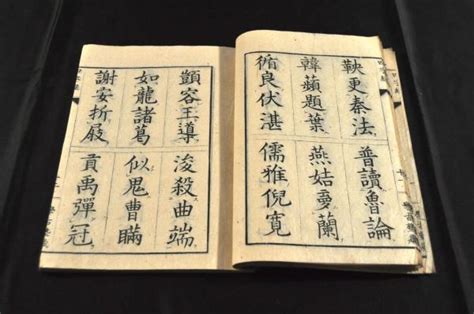 鞅更秦法 普讀魯論
韓蘋題葉 燕姞夢蘭
循良伏湛 儒雅倪寬
顗容王導 浚殺曲端
如龍諸葛 似鬼曹瞞
謝安折屐 貢禹彈冠